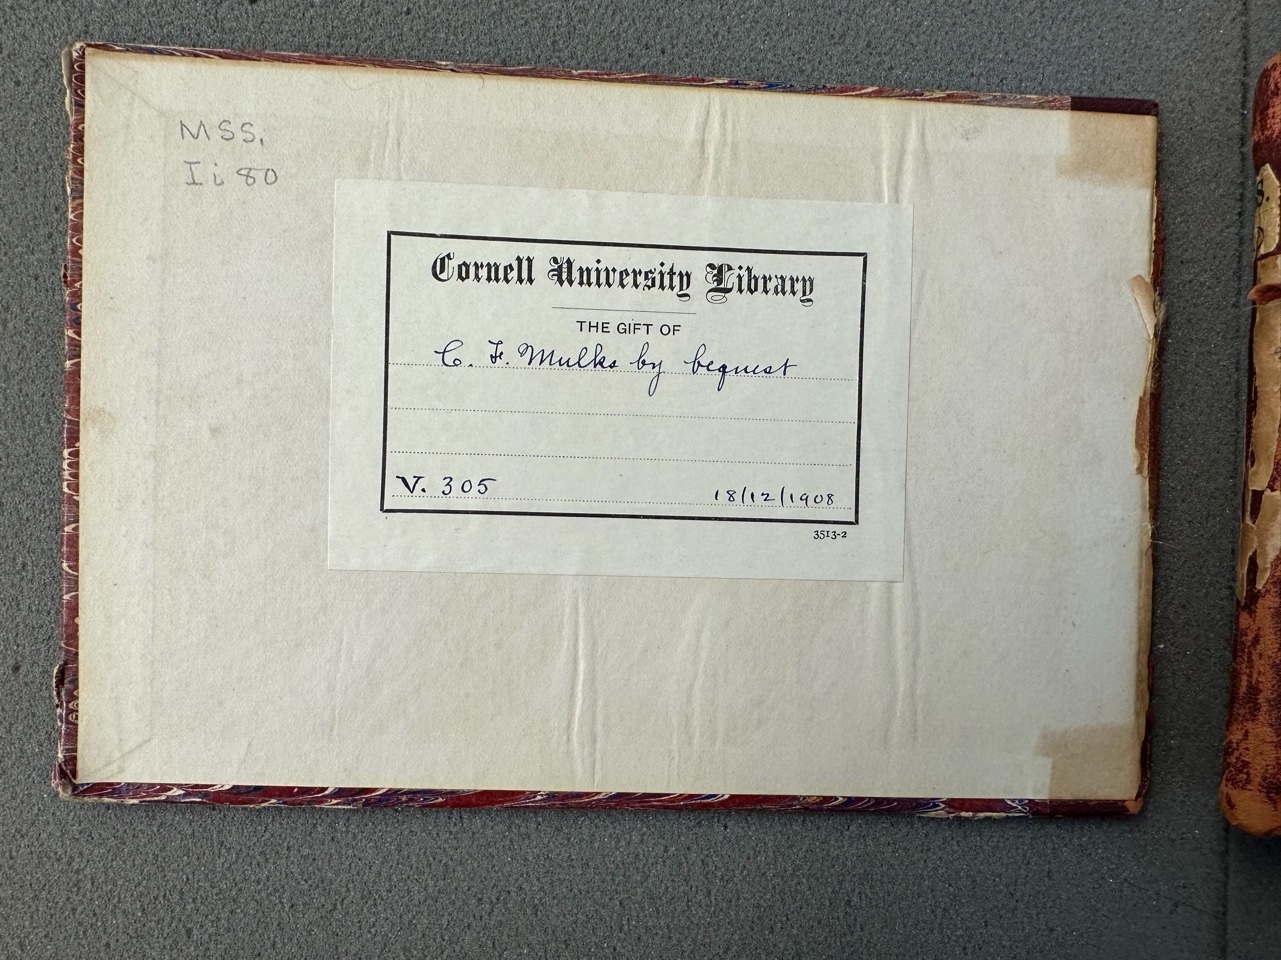 MSS.
I i 80
Cornell University Library
THE GIFT OF
C. F. Mulks by bequest
V. 305
18/12/1908
3513-2